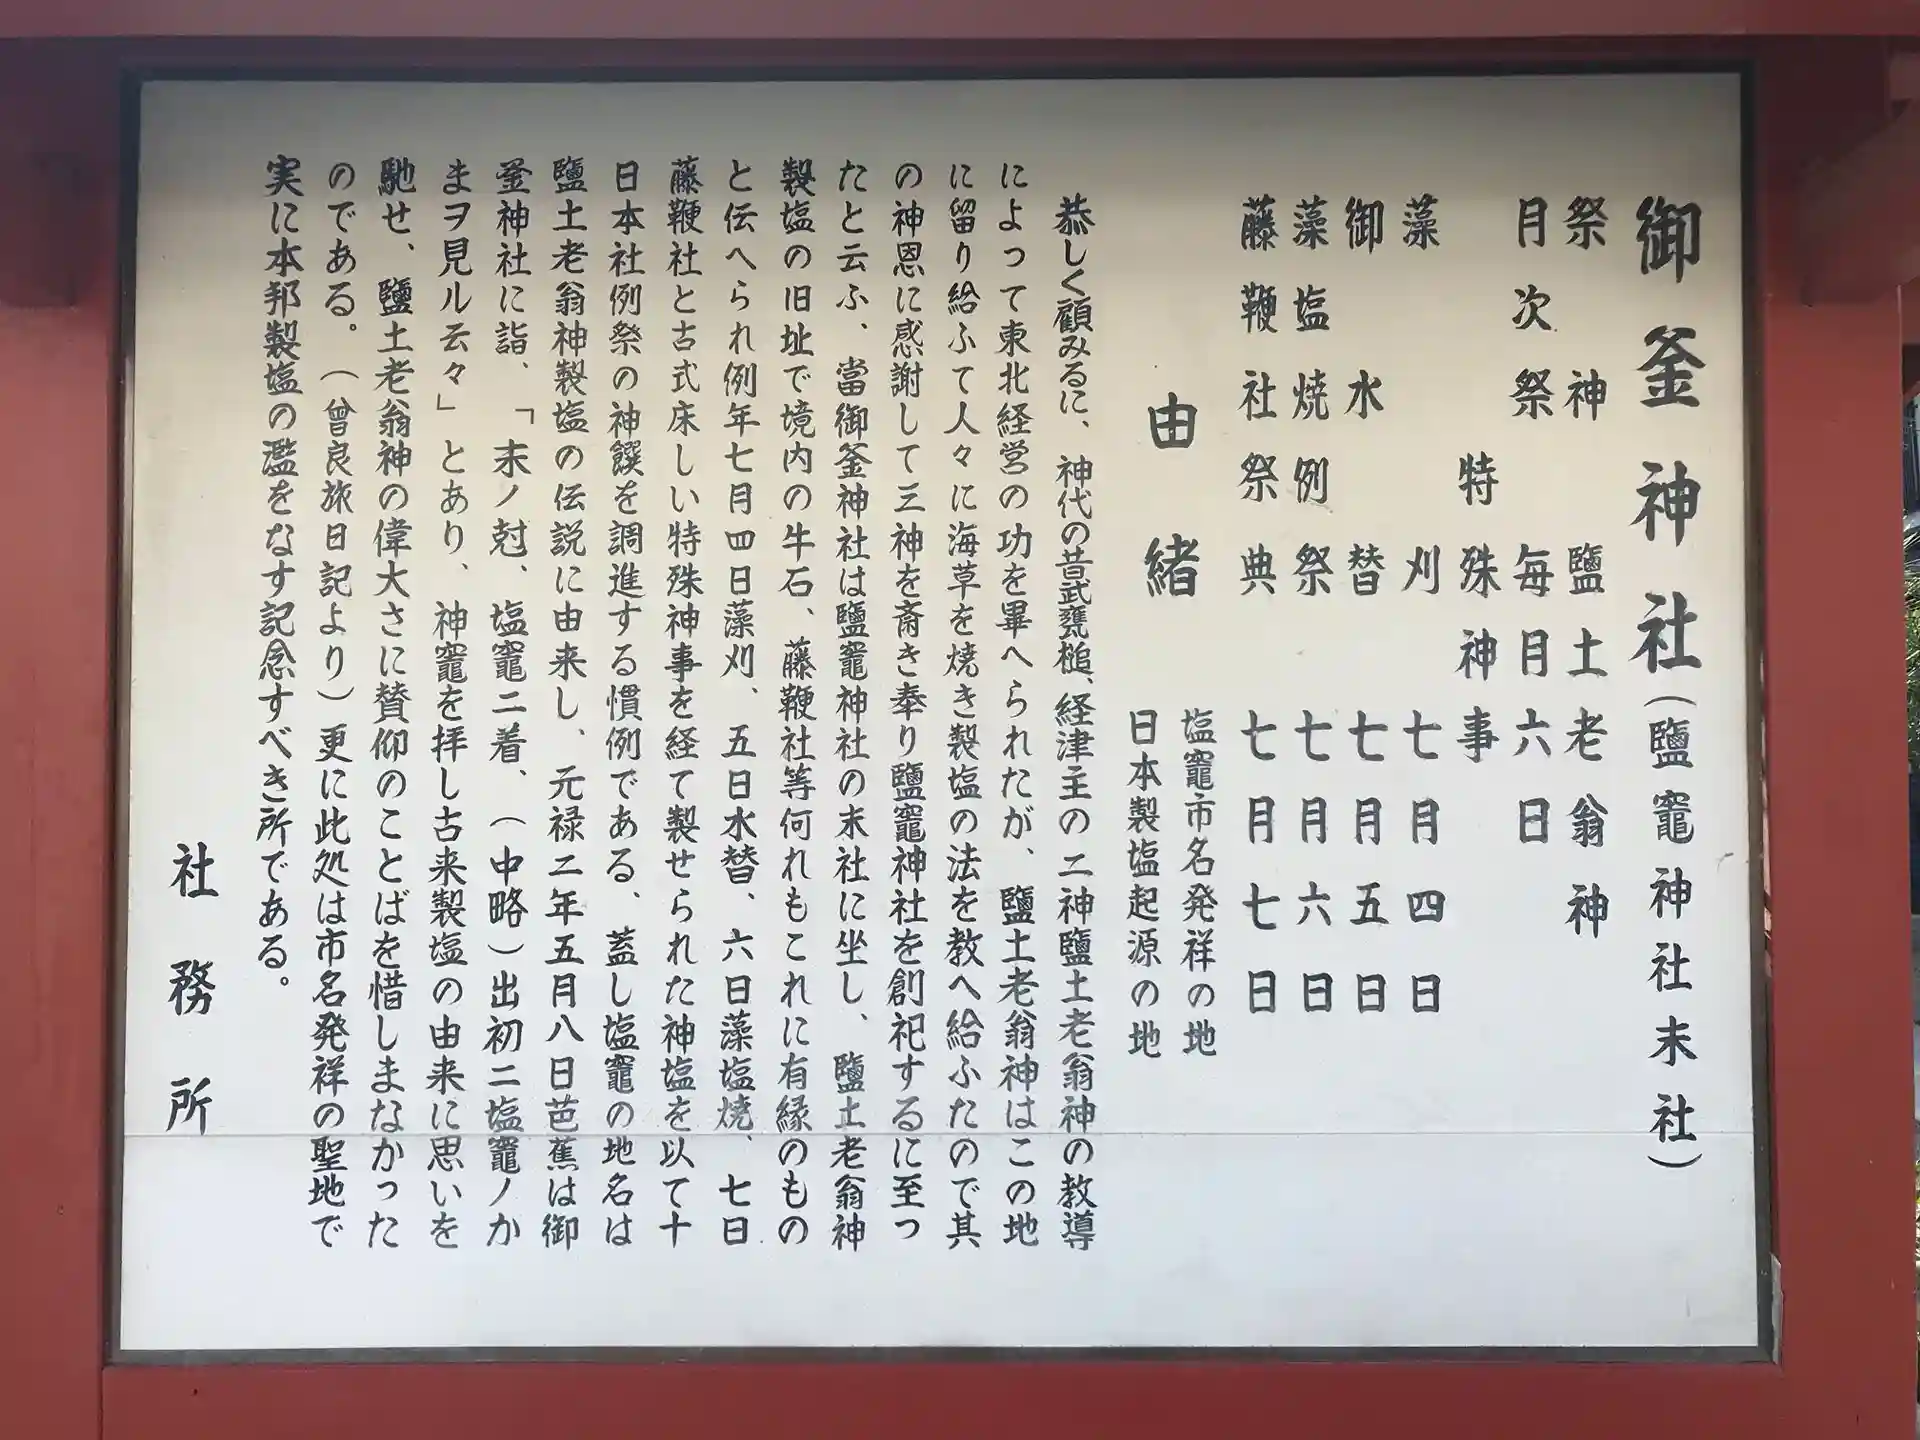 御釜神社(鹽竈神社末社)
祭神　鹽土老翁神
月次祭　毎月六日
特殊神事
藻刈　七月四日
御水替　七月五日
藻塩焼例祭　七月六日
藤鞭社祭典　七月七日
塩竈市名発祥の地
由緒
日本製塩起源の地
恭しく顧みるに、神代の昔武甕槌、経津主の二神鹽土老翁神の教導
によって東北経営の功を畢へられたが、鹽土老翁神はこの地
に留り給ふて人々に海草を焼き製塩の法を教へ給ふたので其
の神恩に感謝して三神を斎き奉り鹽竈神社を創祀するに至っ
たと云ふ、當御釜神社は鹽竈神社の末社に坐し、鹽土老翁神
製塩の旧址で境内の牛石、藤鞭社等何れもこれに有縁のもの
と伝へられ例年七月四日藻刈、五日水替、六日藻塩焼、七日
藤鞭社と古式床しい特殊神事を経て製せられた神塩を以て十
日本社例祭の神饌を調進する慣例である、蓋し塩竈の地名は
鹽土老翁神製塩の伝説に由来し、元禄二年五月八日芭蕉は御
釜神社に詣、「末ノ尅、塩竈ニ着、(中略)出初ニ塩竈ノか
まヲ見ル云々」とあり、神竈を拝し古来製塩の由来に思いを
馳せ、鹽土老翁神の偉大さに賛仰のことばを惜しまなかった
のである。(曾良旅日記より)更に此処は市名発祥の聖地で
実に本邦製塩の濫をなす記念すべき所である。
社務所